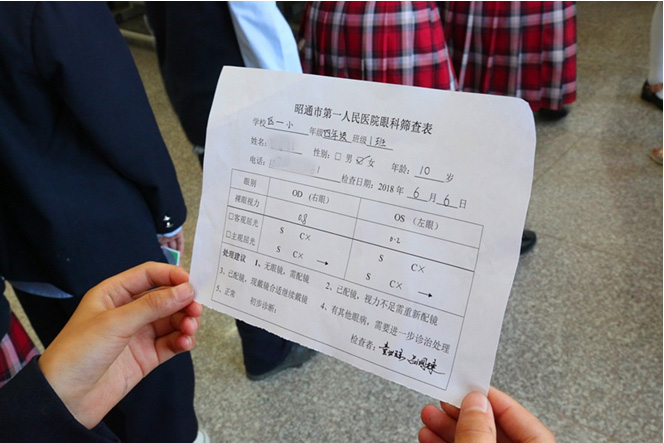 昭通市第一人民医院眼科筛查表
学校 区一小 年级 四年级 班级 1班
姓名: 性别: □ 男 ☑ 女 年龄: 10 岁
电话: 检查日期: 2018 年 6 月 6 日
眼别 OD (右眼) OS (左眼)
裸眼视力 0.8 0.2
□客观屈光 S C× → S C× →
□主观屈光 S C× → S C× →
处理建议 1、无眼镜,需配镜 2、已配镜,视力不足需重新配镜
3、已配镜,现戴镜合适继续戴镜 4、有其他眼病,需要进一步诊治处理
5、正常 初步诊断:
检查者: